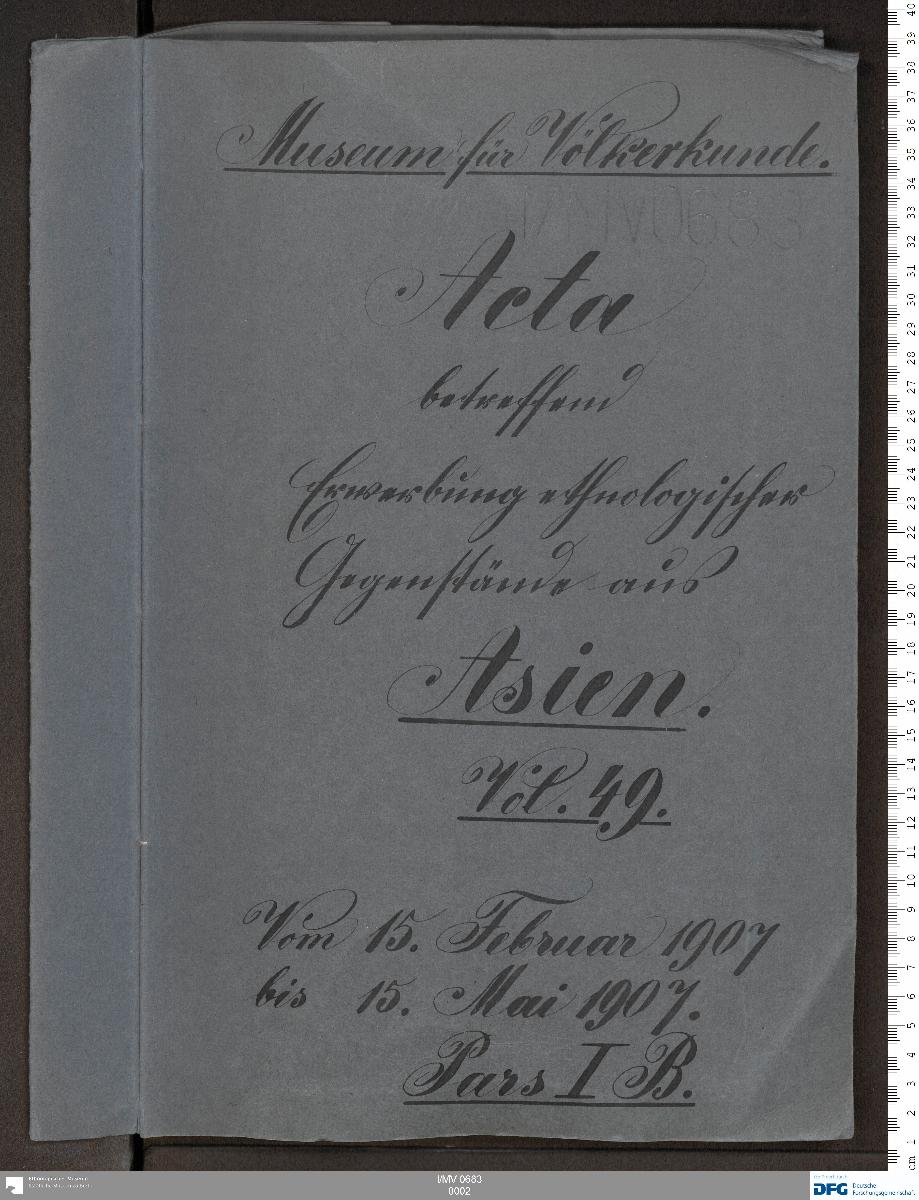 Museum für Völkerkunde.
Acta
betreffend
Erwerbung ethnologischer
Gegenstände aus
Asien.
Vol. 49.
Vom 15. Februar 1907
bis 15. Mai 1907.
Pars I B.
I/MV 0683
0002
DFG Deutsche
Forschungsgemeinschaft
cm 1 2 3 4 5 6 7 8 9 10 11 12 13 14 15 16 17 18 19 20 21 22 23 24 25 26 27 28 29 30 31 32 33 34 35 36 37 38 39 40